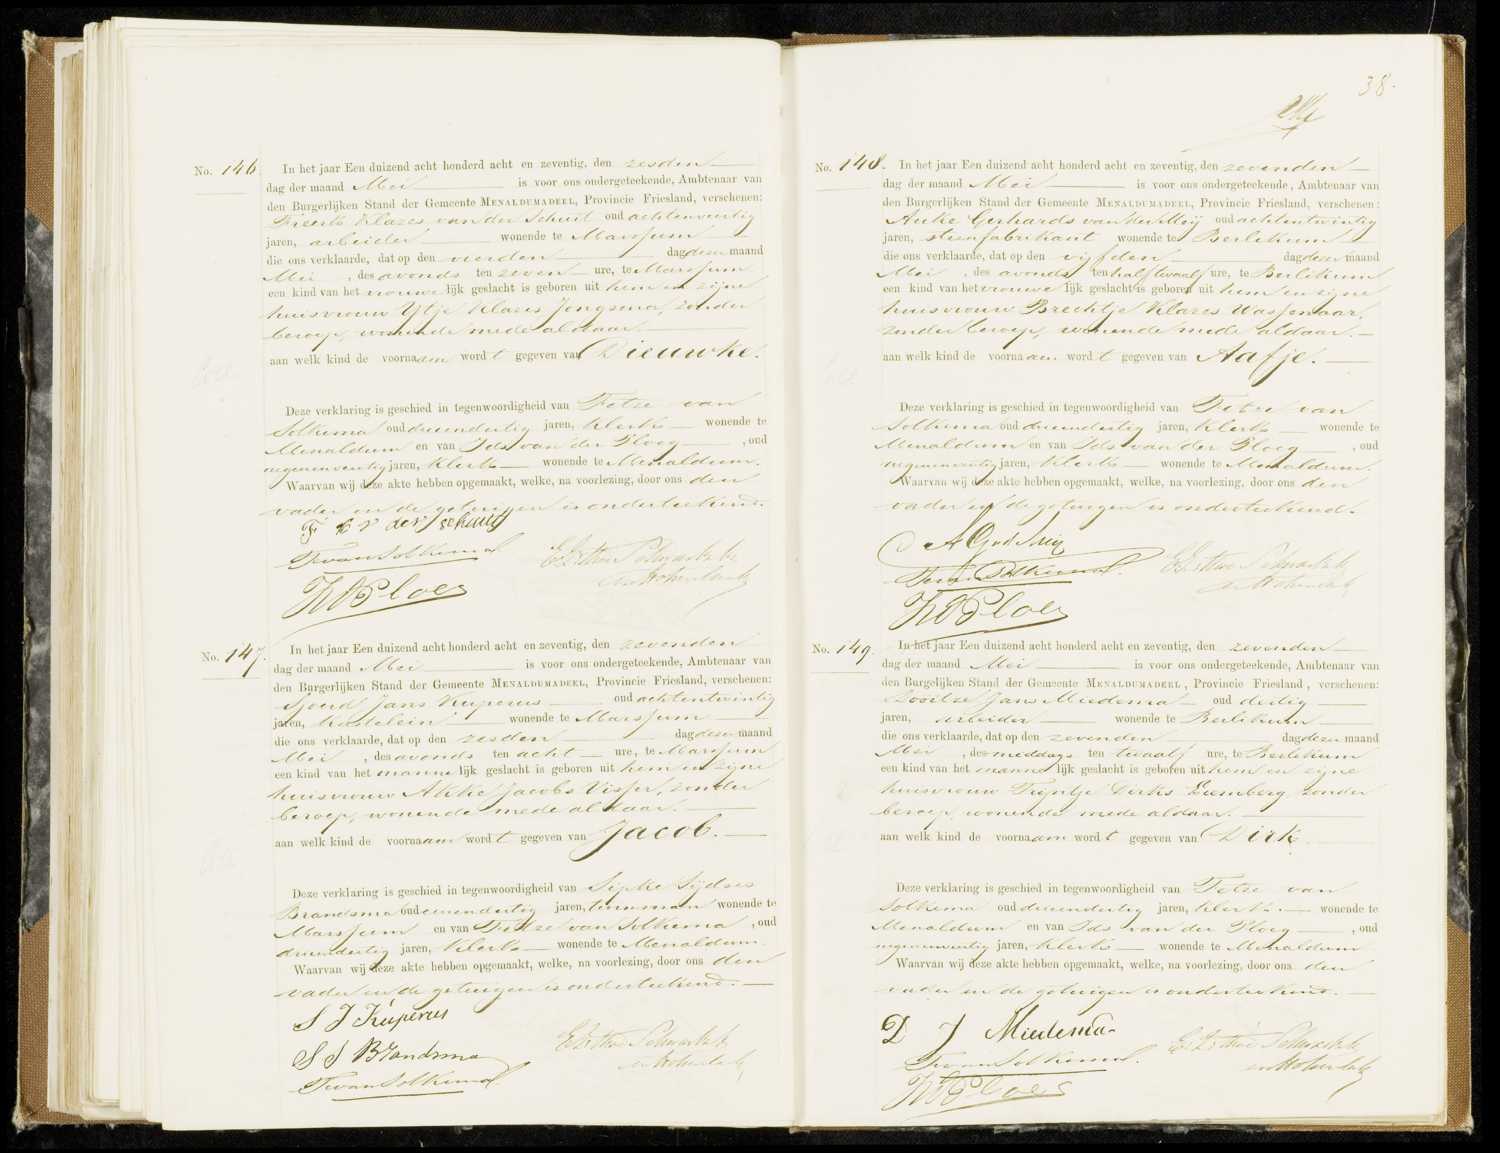 No. 146. In het jaar Een duizend acht honderd acht en zeventig, den zesden
dag der maand Mei is voor ons ondergeteekende, Ambtenaar van
den Burgerlijken Stand der Gemeente MENALDUMADEEL, Provincie Friesland, verschenen:
Freerk Klazes van der Schuit oud achtenveertig
jaren, arbeider wonende te Marssum
die ons verklaarde, dat op den vierden dag dezer maand
Mei, des avonds ten zeven ure, te Marssum
een kind van het vrouwelijk geslacht is geboren uit hem en zijne
huisvrouw Ytje Klazes Jongsma, zonder
beroep, wonende mede aldaar.
aan welk kind de voornaam wordt gegeven van Dieuwke.
Deze verklaring is geschied in tegenwoordigheid van Fetze van
Solkema oud drieendertig jaren, klerk wonende te
Menaldum en van Ids van der Ploeg, oud
negenenveertig jaren, klerk wonende te Menaldum.
Waarvan wij deze akte hebben opgemaakt, welke, na voorlezing, door ons den
vader en de getuigen is onderteekend.
F K v der schuit
F van Solkema
IVDPloeg
No. 147. In het jaar Een duizend acht honderd acht en zeventig, den zevenden
dag der maand Mei is voor ons ondergeteekende, Ambtenaar van
den Burgerlijken Stand der Gemeente MENALDUMADEEL, Provincie Friesland, verschenen:
Sjoerd Jans Kuperus oud achtentwintig
jaren, kastelein wonende te Marssum
die ons verklaarde, dat op den zesden dag dezer maand
Mei, des avonds ten acht ure, te Marssum
een kind van het mannelijk geslacht is geboren uit hem en zijne
huisvrouw Akke Jacobs Visser, zonder
beroep, wonende mede aldaar.
aan welk kind de voornaam wordt gegeven van Jacob.
Deze verklaring is geschied in tegenwoordigheid van Sipke Sijdses
Brandsma oud eenendertig jaren, timmerman wonende te
Marssum en van Fetze van Solkema, oud
drieendertig jaren, klerk wonende te Menaldum.
Waarvan wij deze akte hebben opgemaakt, welke, na voorlezing, door ons den
vader en de getuigen is onderteekend.
S J Kuperus
S S Brandsma
F van Solkema
38.
No. 148. In het jaar Een duizend acht honderd acht en zeventig, den zevenden
dag der maand Mei is voor ons ondergeteekende, Ambtenaar van
den Burgerlijken Stand der Gemeente MENALDUMADEEL, Provincie Friesland, verschenen:
Auke Gerhards van der Meij oud achtentwintig
jaren, steenfabrikant wonende te Berlikum
die ons verklaarde, dat op den vijfden dag dezer maand
Mei, des avonds ten half twaalf ure, te Berlikum
een kind van het vrouwelijk geslacht is geboren uit hem en zijne
huisvrouw Brechtje Klazes Wassenaar,
zonder beroep, wonende mede aldaar.
aan welk kind de voornaam wordt gegeven van Aafje.
Deze verklaring is geschied in tegenwoordigheid van Fetze van
Solkema oud drieendertig jaren, klerk wonende te
Menaldum en van Ids van der Ploeg, oud
negenenveertig jaren, klerk wonende te Menaldum.
Waarvan wij deze akte hebben opgemaakt, welke, na voorlezing, door ons den
vader en de getuigen is onderteekend.
F van Solkema
IVDPloeg
No. 149. In het jaar Een duizend acht honderd acht en zeventig, den zevenden
dag der maand Mei is voor ons ondergeteekende, Ambtenaar van
den Burgelijken Stand der Gemeente MENALDUMADEEL, Provincie Friesland, verschenen:
Dooitze Jans Miedema oud dertig
jaren, arbeider wonende te Berlikum
die ons verklaarde, dat op den zevenden dag dezer maand
Mei, des middags ten twaalf ure, te Berlikum
een kind van het mannelijk geslacht is geboren uit hem en zijne
huisvrouw Trijntje Dirks Bremberg, zonder
beroep, wonende mede aldaar.
aan welk kind de voornaam wordt gegeven van Dirk.
Deze verklaring is geschied in tegenwoordigheid van Fetze van
Solkema oud drieendertig jaren, klerk wonende te
Menaldum en van Ids van der Ploeg, oud
negenenveertig jaren, klerk wonende te Menaldum.
Waarvan wij deze akte hebben opgemaakt, welke, na voorlezing, door ons den
vader en de getuigen is onderteekend.
D J Miedema
F van Solkema
IVDPloeg